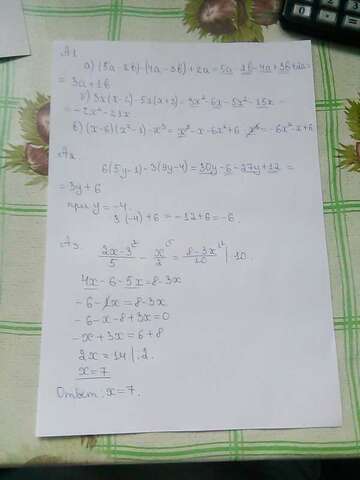 А1
а) (5a-2b)-(4a-3b)+2a=5a-2b-4a+3b+2a=
=3a+1b
б) 3x(x-2)-5x(x+3)=3x²-6x-5x²-15x=
=-2x²-21x
в) (x-6)(x²-1)-x³=x³-x-6x²+6-x³=-6x²-x+6
А2
6(5y-1)-3(9y-4)=30y-6-27y+12=
=3y+6
при y=-4
3·(-4)+6=-12+6=-6.
А3.
(2x-3)/5 - x/2 = (8-3x)/10 |·10.
4x-6-5x=8-3x
-6-1x=8-3x
-6-x-8+3x=0
-x+3x=6+8
2x=14|:2.
x=7
Ответ: x=7.